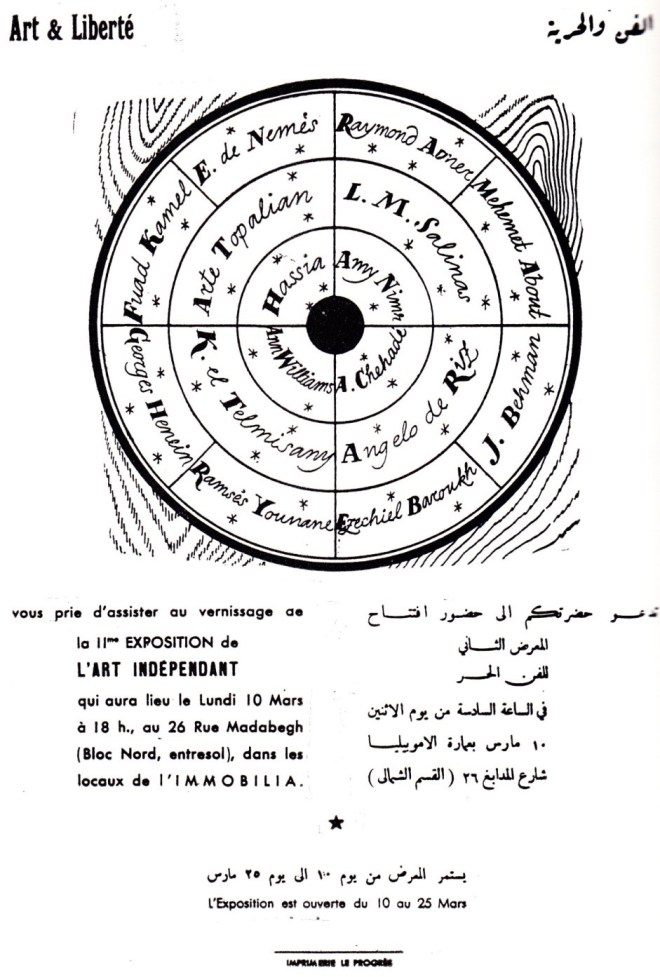 Art & Liberté
الفن والحرية
E. de Nemés
Raymond Abner
Mehemet About
J. Behman
Ezechiel Baroukh
Ramsès Younane
Georges Henein
Fuad Kamel
Arte Topalian
L. M. Salinas
Angelo de Riz
K. el Telmisany
Hassia
Amy Nimr
A. Chehadé
Ann Williams
vous prie d'assister au vernissage de
la IIme EXPOSITION de
L'ART INDÉPENDANT
qui aura lieu le Lundi 10 Mars
à 18 h., au 26 Rue Madabegh
(Bloc Nord, entresol), dans les
locaux de l'IMMOBILIA.
تدعو حضرتكم الى حضور افتتاح
المعرض الثاني
للفن الحر
في الساعة السادسة من يوم الاثنين
١٠ مارس بعمارة الاموبيليا
شارع المدابغ ٢٦ ( القسم الشمالى )
يستمر المعرض من يوم ١٠ الى يوم ٢٥ مارس
L'Exposition est ouverte du 10 au 25 Mars
IMPRIMERIE LE PROGRÈS